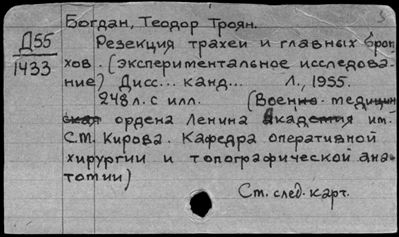 Богдан, Теодор Троян.
Д55
1433
Резекция трахеи и главных брон
хов. (Экспериментальное исследова-
ние) Дисс... канд... Л., 1955.
248 л. с илл. (Военно-медицин
ская ордена Ленина Академия им.
С.М. Кирова. Кафедра оперативной
хирургии и топографической ана-
томии)
См. след. карт.